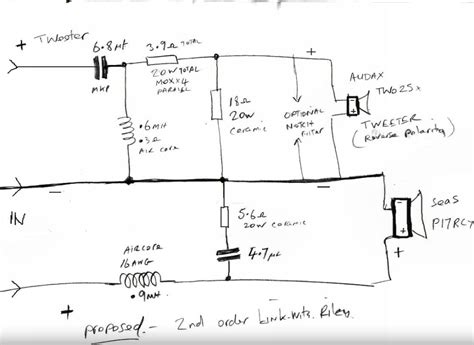 + Tweeter
6.8µf
MKP
3.9Ω TOTAL
20W TOTAL
MOX x 4
PARALLEL
+
.6MH
.3Ω
AIR CORE
18Ω
20W
ceramic
OPTIONAL
NOTCH
Filter
AUDAX
TW025x
TWEETER
(Reverse Polarity)
−
−
IN
5.6Ω
20W ceramic
4.7µf
SEAS
P17RCY
+
AIRCORE
16AWG
.9MH
+
proposed - 2nd order Link-wits. Riley.